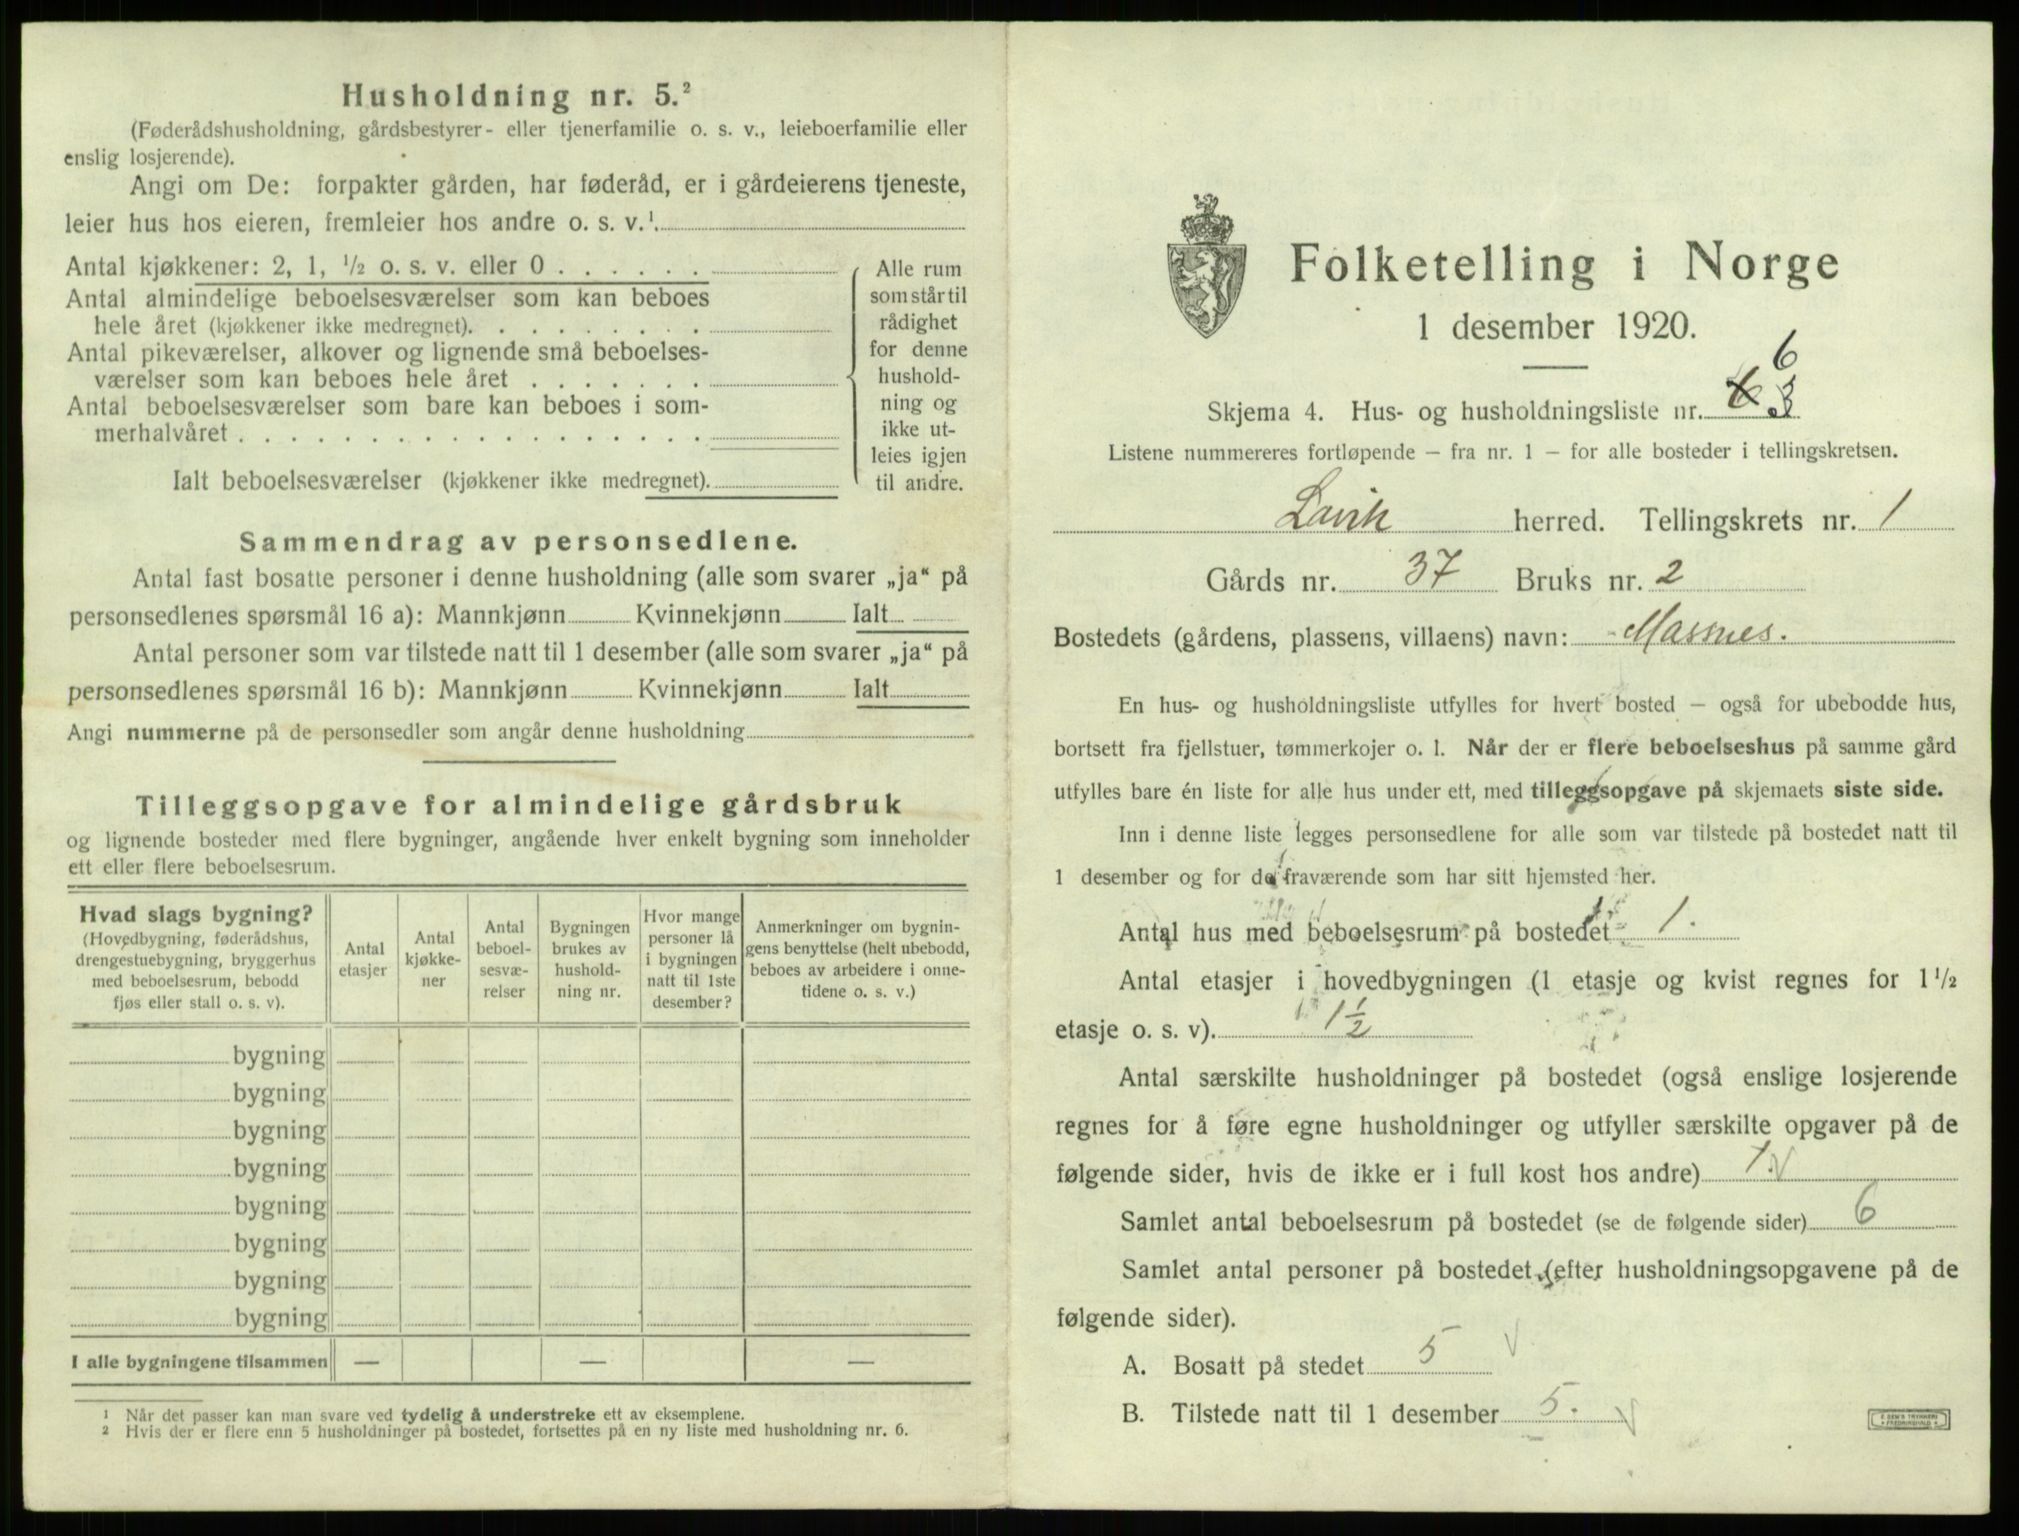 Husholdning nr. 5.²
(Føderådshusholdning, gårdsbestyrer- eller tjenerfamilie o. s. v., leieboerfamilie eller
enslig losjerende).
Angi om De: forpakter gården, har føderåd, er i gårdeierens tjeneste,
leier hus hos eieren, fremleier hos andre o. s. v.¹
Antal kjøkkener: 2, 1, ½ o. s. v. eller 0 . . . . . .
Antal almindelige beboelsesværelser som kan beboes
hele året (kjøkkener ikke medregnet). . . . . . . . .
Antal pikeværelser, alkover og lignende små beboelses-
værelser som kan beboes hele året . . . . . . .
Antal beboelsesværelser som bare kan beboes i som-
merhalvåret . . . . . . . . . . . . . . . . . .
Ialt beboelsesværelser (kjøkkener ikke medregnet).
Alle rum
som står til
rådighet
for denne
hushold-
ning og
ikke ut-
leies igjen
til andre.
Sammendrag av personsedlene.
Antal fast bosatte personer i denne husholdning (alle som svarer „ja“ på
personsedlenes spørsmål 16 a): Mannkjønn Kvinnekjønn Ialt
Antal personer som var tilstede natt til 1 desember (alle som svarer „ja“ på
personsedlenes spørsmål 16 b): Mannkjønn Kvinnekjønn Ialt
Angi nummerne på de personsedler som angår denne husholdning
Tilleggsopgave for almindelige gårdsbruk
og lignende bosteder med flere bygninger, angående hver enkelt bygning som inneholder
ett eller flere beboelsesrum.
Hvad slags bygning?
(Hovedbygning, føderådshus,
drengestuebygning, bryggerhus
med beboelsesrum, bebodd
fjøs eller stall o. s. v).
Antal
etasjer
Antal
kjøkke-
ner
Antal
beboel-
sesvæ-
relser
Bygningen
brukes av
hushold-
ning nr.
Hvor mange
personer lå
i bygningen
natt til 1ste
desember?
Anmerkninger om bygnin-
gens benyttelse (helt ubebodd,
beboes av arbeidere i onne-
tidene o. s. v.)
bygning
bygning
bygning
bygning
bygning
bygning
bygning
bygning
I alle bygningene tilsammen — — —
¹ Når det passer kan man svare ved tydelig å understreke ett av eksemplene.
² Hvis der er flere enn 5 husholdninger på bostedet, fortsettes på en ny liste med husholdning nr. 6.
Folketelling i Norge
1 desember 1920.
6
Skjema 4. Hus- og husholdningsliste nr. 6 3
Listene nummereres fortløpende — fra nr. 1 — for alle bosteder i tellingskretsen.
Lavik herred. Tellingskrets nr. 1
Gårds nr. 37 Bruks nr. 2
Bostedets (gårdens, plassens, villaens) navn: Massnes.
En hus- og husholdningsliste utfylles for hvert bosted — også for ubebodde hus,
bortsett fra fjellstuer, tømmerkojer o. l. Når der er flere beboelseshus på samme gård
utfylles bare én liste for alle hus under ett, med tilleggsopgave på skjemaets siste side.
Inn i denne liste legges personsedlene for alle som var tilstede på bostedet natt til
1 desember og for de fraværende som har sitt hjemsted her.
Antal hus med beboelsesrum på bostedet 1.
Antal etasjer i hovedbygningen (1 etasje og kvist regnes for 1½
etasje o. s. v). 1½
Antal særskilte husholdninger på bostedet (også enslige losjerende
regnes for å føre egne husholdninger og utfyller særskilte opgaver på de
følgende sider, hvis de ikke er i full kost hos andre) 1.
Samlet antal beboelsesrum på bostedet (se de følgende sider) 6
Samlet antal personer på bostedet (efter husholdningsopgavene på de
følgende sider).
A. Bosatt på stedet 5
B. Tilstede natt til 1 desember 5.